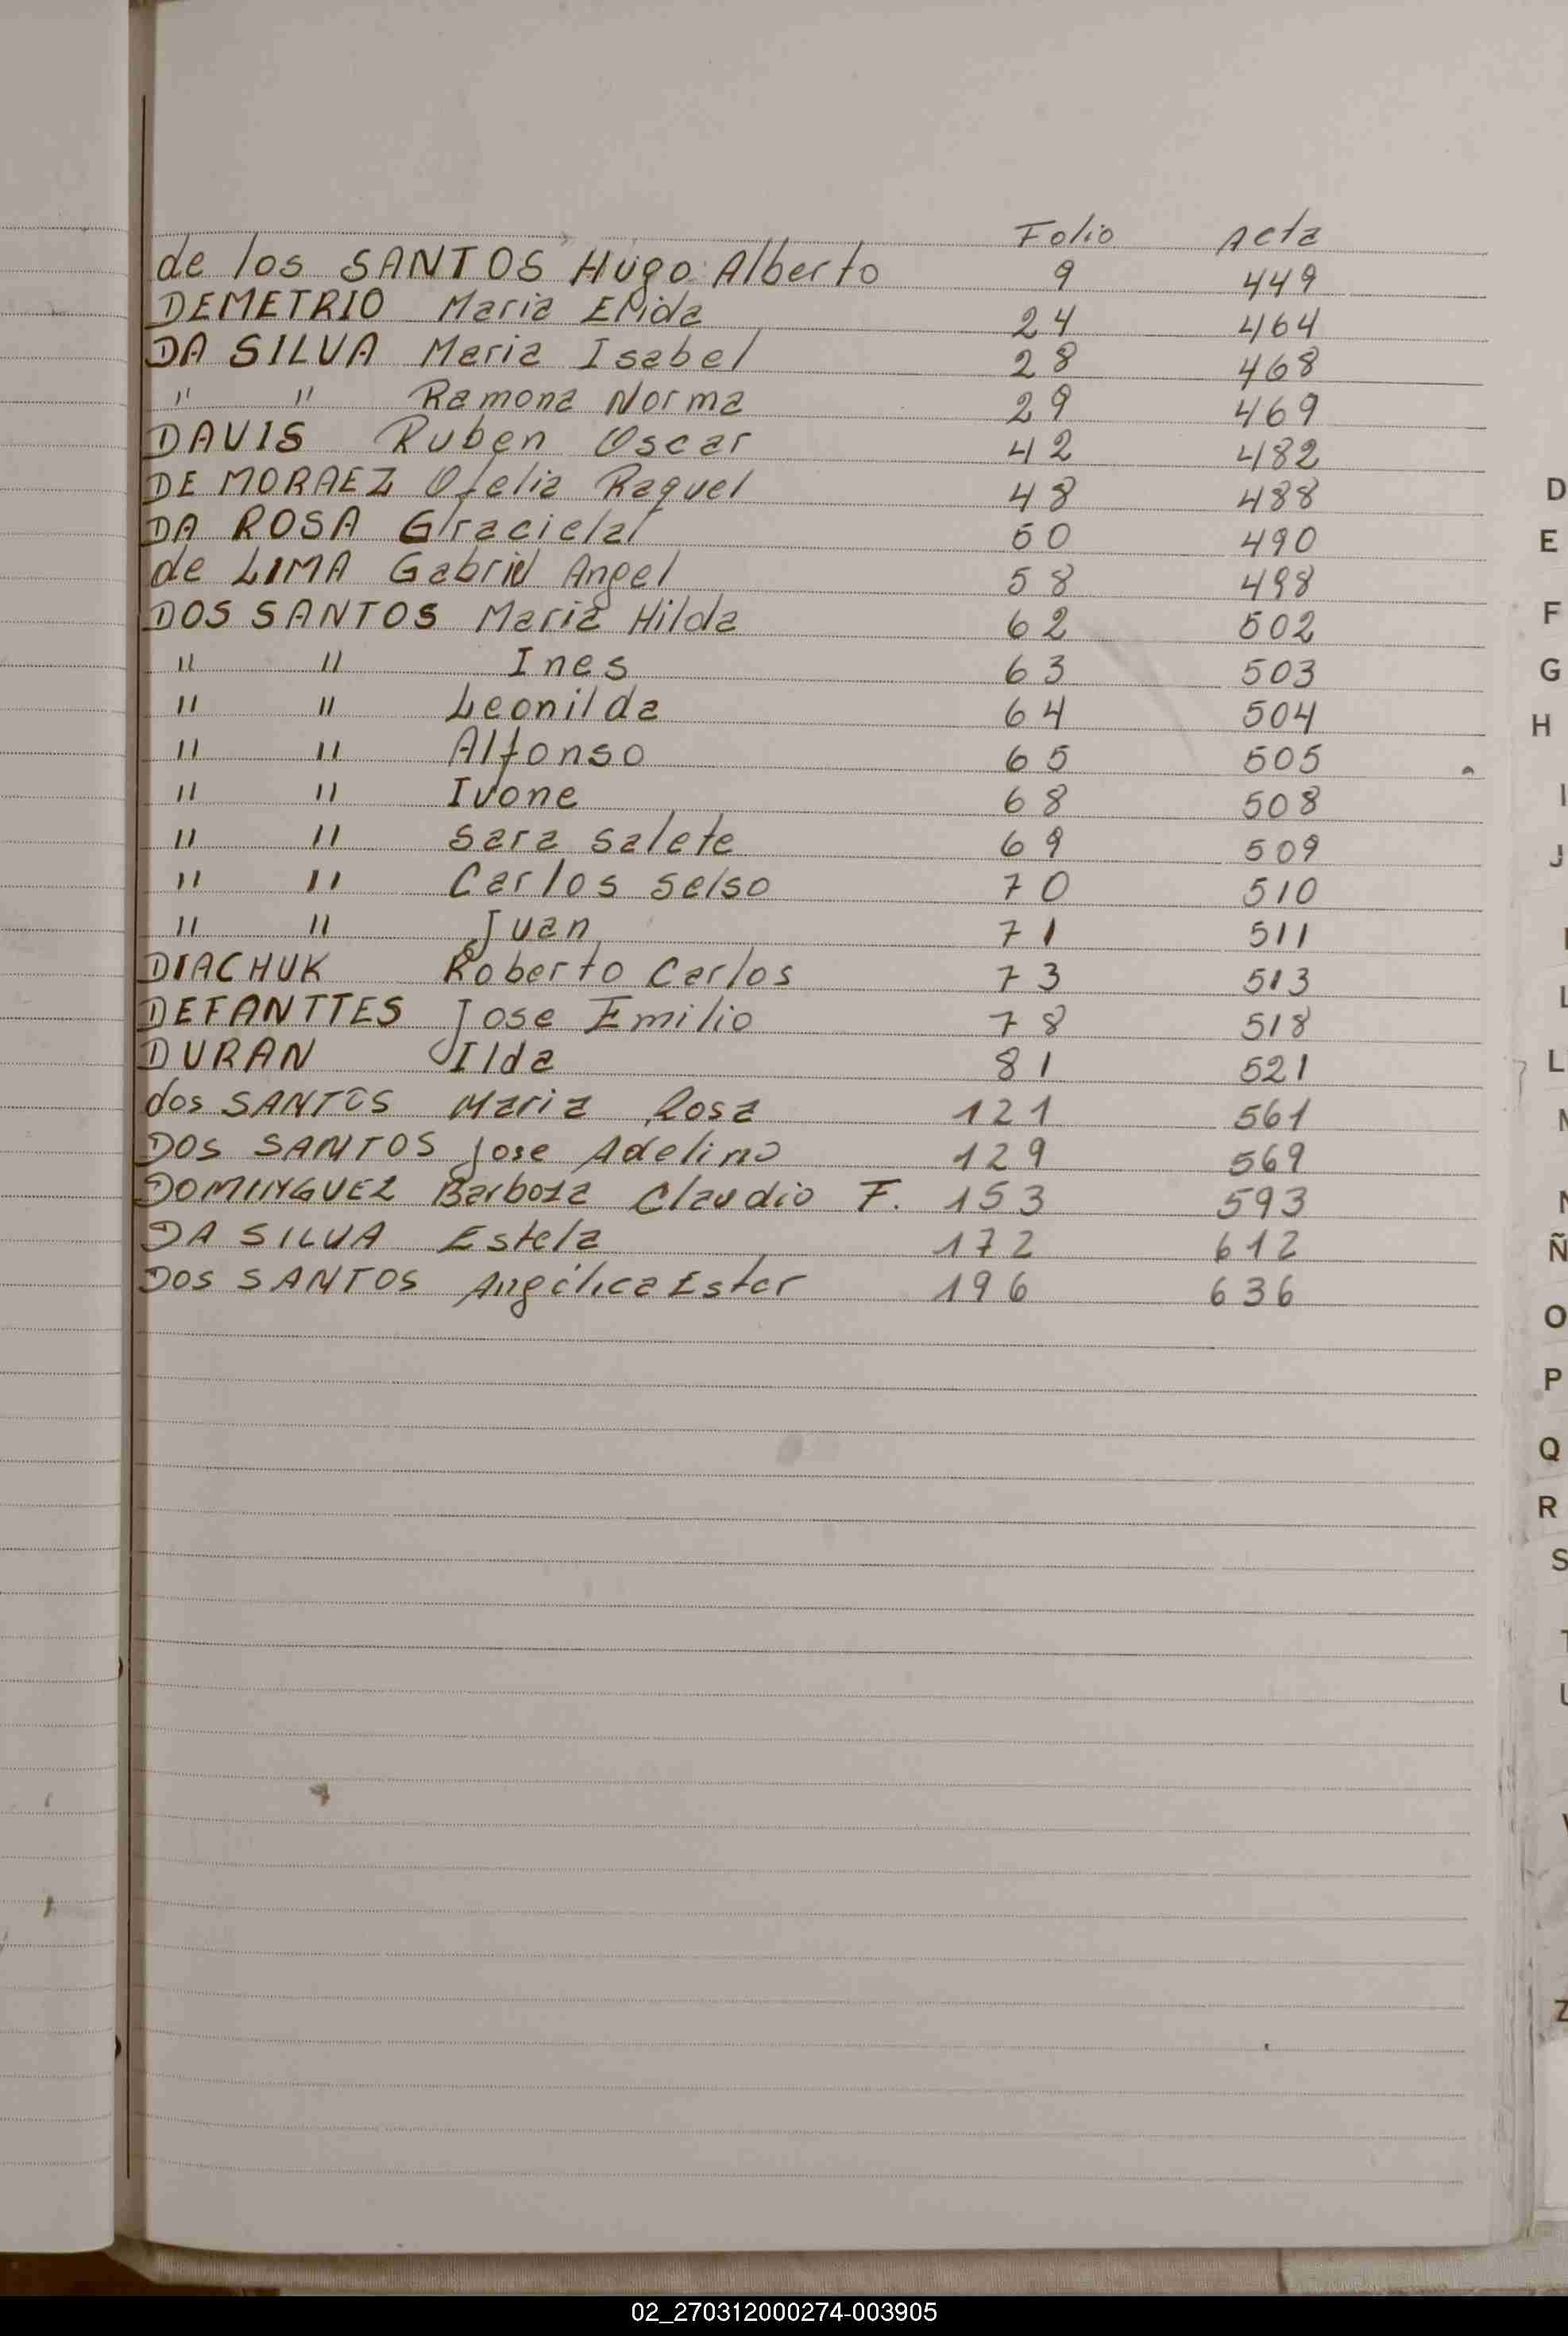 Folio Acta
de los SANTOS Hugo Alberto 9 449
DEMETRIO Maria Elida 24 464
DA SILVA Maria Isabel 28 468
" " Ramona Norma 29 469
DAVIS Ruben Oscar 42 482
DE MORAEZ Ofelia Raquel 48 488
DA ROSA Graciela 50 490
de LIMA Gabriel Angel 58 498
DOS SANTOS Maria Hilda 62 502
" " Ines 63 503
" " Leonilda 64 504
" " Alfonso 65 505
" " Ivone 68 508
" " Sara Salete 69 509
" " Carlos Selso 70 510
" " Juan 71 511
DIACHUK Roberto Carlos 73 513
DEFANTTES Jose Emilio 78 518
DURAN Ilda 81 521
dos SANTOS Maria Rosa 121 561
DOS SANTOS Jose Adelino 129 569
DOMINGUEZ Barboza Claudio F. 153 593
DA SILVA Estela 172 612
DOS SANTOS Angélica Ester 196 636
D
E
F
G
H
I
J
L
M
N
Ñ
O
P
Q
R
S
T
U
V
Z
02_270312000274-003905